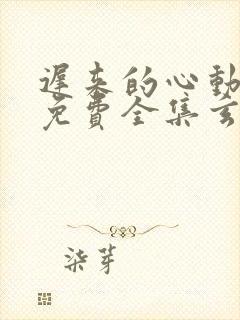 遲来的心動
免費全集玄
柒芽